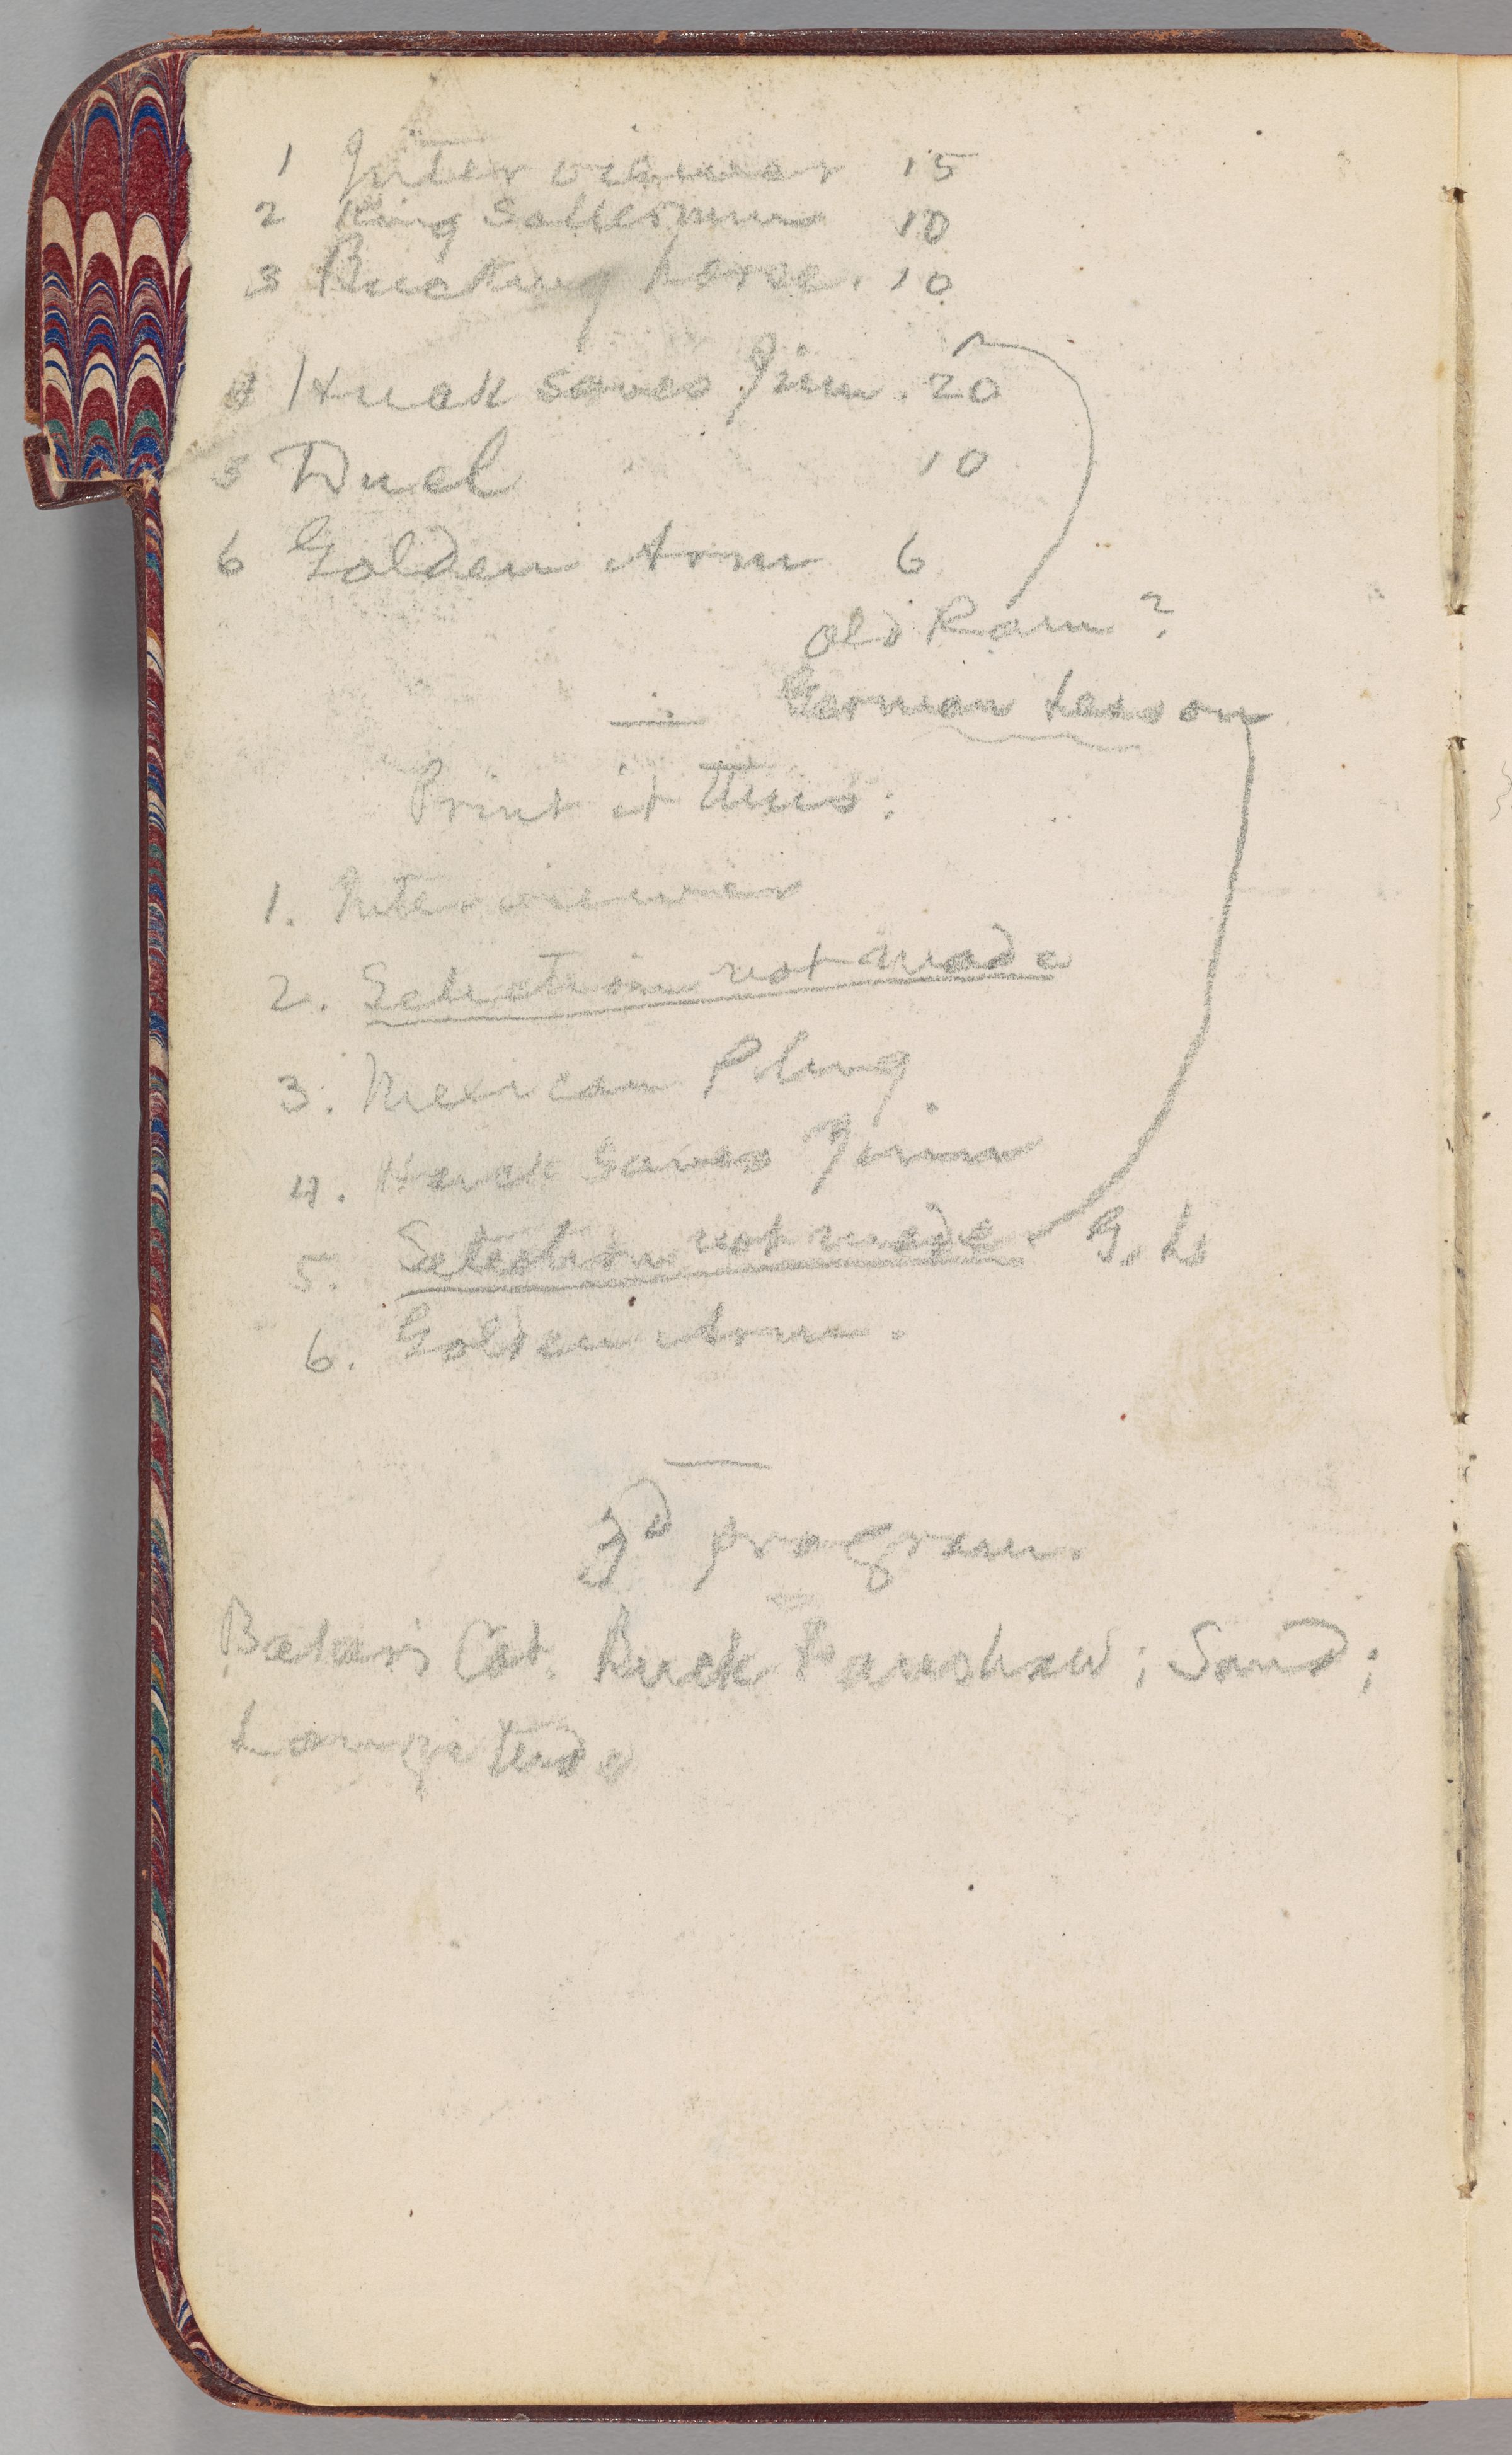 1 Interviewer 15
2 King Sollermun 10
3 Bucking horse. 10
4 Huck saves Jim. 20
5 Duel 10
6 Golden Arm 6
Old Ram?
German Lesson
Print it thus:
1. Interviewer
2. Selection not made
3. Mexican Plug
4. Huck saves Jim
5. Selection not made G. L
6. Golden Arm.
3d program.
Baker's Cat. Buck Fanshaw; Sand;
Longitude